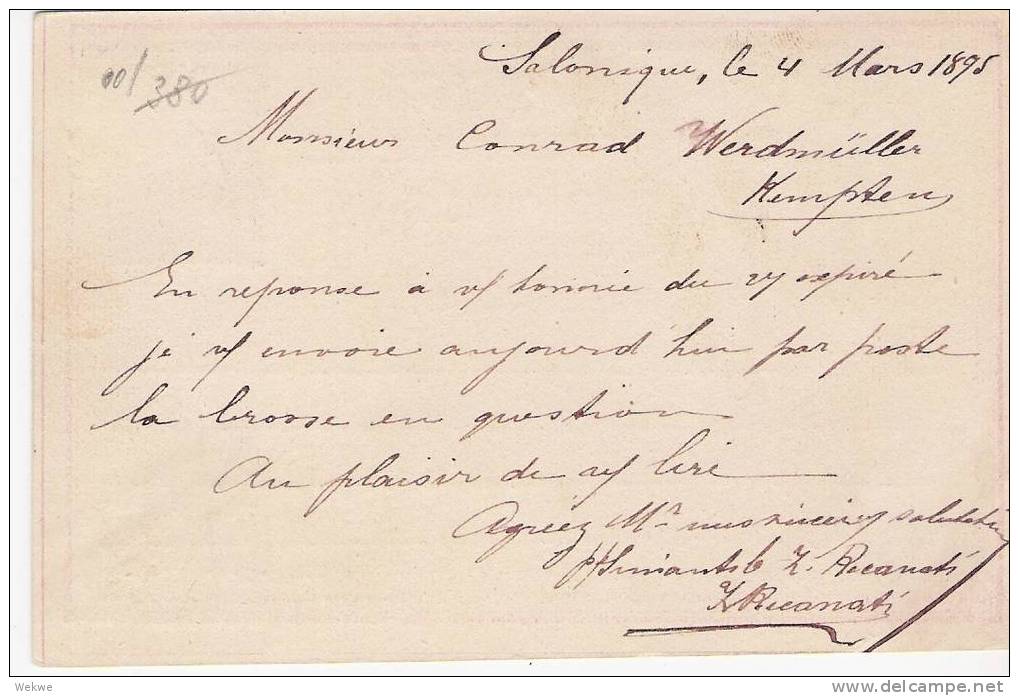 Salonique, le 4 Mars 1895
00/ 380
Monsieur Conrad Werdmüller
Kempten
En reponse à v/ honorée du expiré
je v/ envoie aujourd'hui par poste
la brosse en question
Au plaisir de v/ lire
Agréez Mr nos sincères salutations
Z. Recanati
Z Recanati
Wekwe
delcampe.net